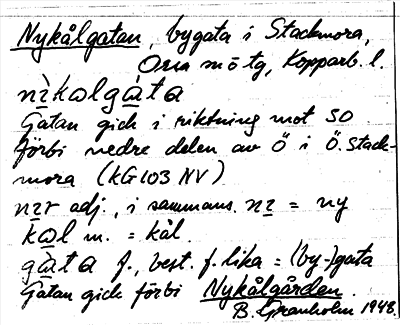 Nykålgatan, bygata i Stackmora,
Orsa m ö tg, Kopparb. l.
nìkalgàta
Gatan gick i riktning mot SO
förbi nedre delen av Ö i Ö. Stack-
mora (KG103 NV)
nɪr adj., i sammans. nɪ = ny
kal m. = kål
gàta f., best. f. lika = (by-)gata
Gatan gick förbi Nykålgården.
B. Granholm 1948.